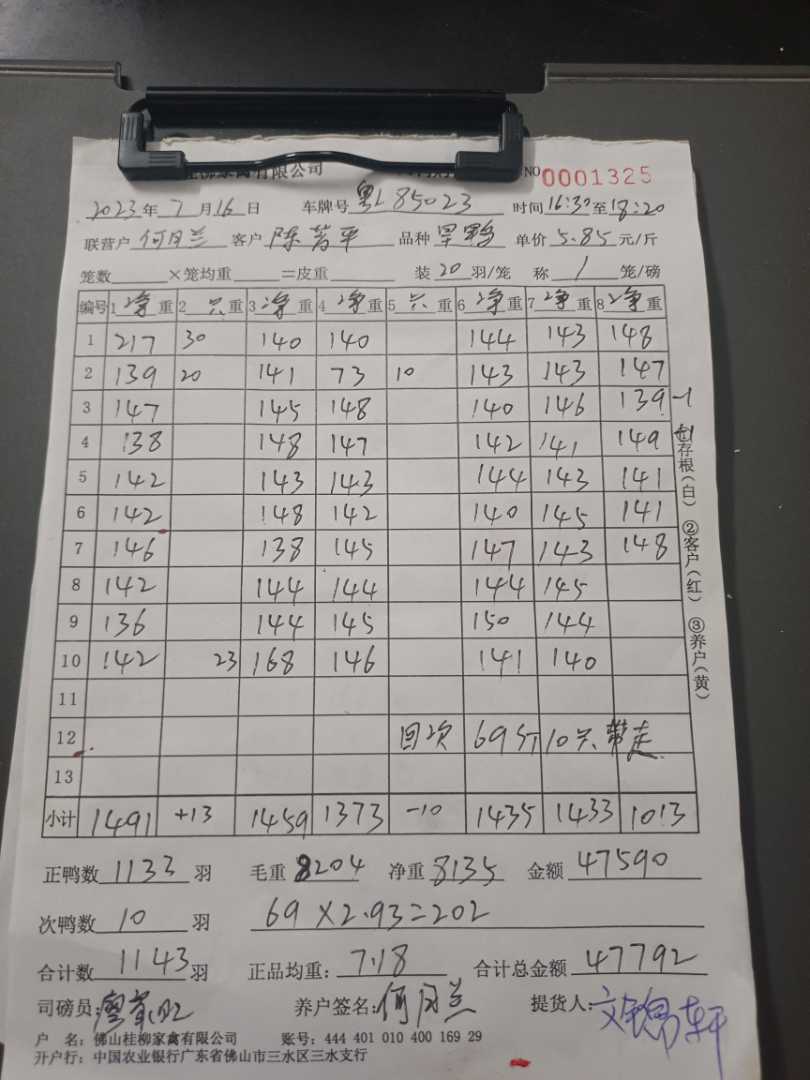 柳家禽有限公司 NO 0001325
2023年7月16日 车牌号 粤L85023 时间16:30至18:20
联营户 何月兰 客户 陈芳平 品种 旱鸭 单价 5.85 元/斤
笼数 ×笼均重 =皮重 装 20 羽/笼 称 1 笼/磅
编号 1 净 重 2 只 重 3 净 重 4 净 重 5 只 重 6 净 重 7 净 重 8 净 重
1 217 30 140 140 144 143 148
2 139 20 141 73 10 143 143 147
3 147 145 148 140 146 139 -1
4 138 148 147 142 141 149
5 142 143 143 144 143 141
6 142 148 142 140 145 141
7 146 138 145 147 143 148
8 142 144 144 144 145
9 136 144 145 150 144
10 142 23 168 146 141 140
11
12 回次 69斤 10只 带走
13
小计 1491 +13 1459 1373 -10 1435 1433 1013
存根(白) ②客户(红) ③养户(黄)
正鸭数 1133 羽 毛重 8204 净重 8135 金额 47590
次鸭数 10 羽 69×2.93=202
合计数 1143 羽 正品均重: 7.18 合计总金额 47792
司磅员: 养户签名: 何月兰 提货人:
户 名: 佛山桂柳家禽有限公司 账号: 444 401 010 400 169 29
开户行: 中国农业银行广东省佛山市三水区三水支行